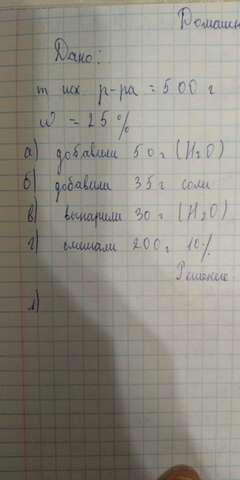 Домашн
Дано:
m исх р-ра = 500 г
ω = 25 %
а) добавили 50 г (H₂O)
б) добавили 35 г соли
в) выпарили 30 г (H₂O)
г) смешали 200 г 10%
Решение